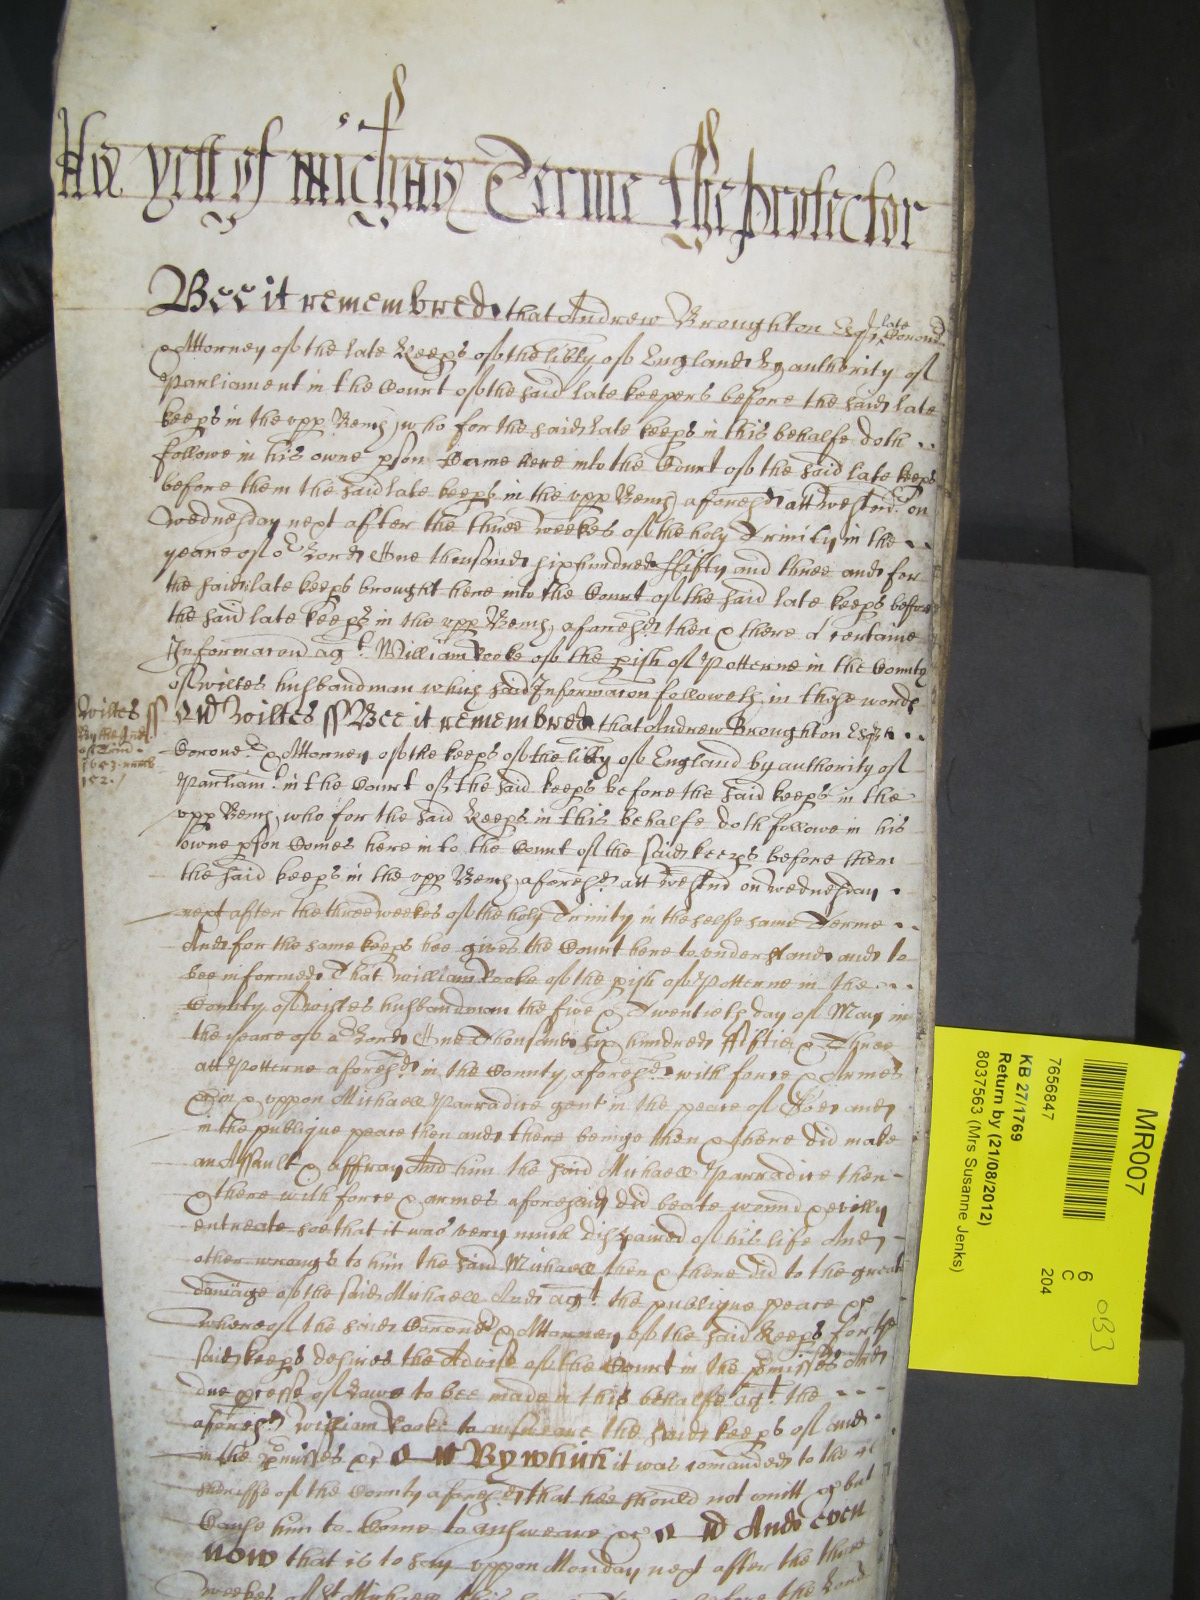 Yett of Michaς Terme the protector
Bee it remembred that Andrew Broughton Esqr late Corond
& Attorney of the late Keeps of the libty of England by authority of
Parliament in the Court of the said late keepers before the said late
keeps in the upp Bench, who for the said late keeps in this behalfe doth
followe in his owne pson Came here into the Court of the said late keeps
before them the said late keeps in the upp Bench aforesd att Westmr on
Wednesday next after the three weekes of the holy Trinity in the
yeare of or Lord One thousand six hundred Fifty and three and for
the said late keeps brought here into the Court of the said late keeps before
the said late keeps in the upp Bench aforesd then & there a certaine
Informacon agt William Cooke of the pish of Potterne in the County
of Wiltes husbandman which said Informacon followeth in these words
Wiltes ss
By the Inf
of Trin
1653 numb
152
ss Wiltes ss Bee it remembred that Andrew Broughton Esqr
Corond & Attorney of the keeps of the libty of England by authority of
Parliamt in the Court of the said keeps before the said keeps in the
upp Bench, who for the said Keeps in this behalfe doth followe in his
owne pson Comes here in to the Court of the said keeps before them
the said keeps in the upp Bench aforesd att Westmr on Wednesday
next after the three weekes of the holy Trinity in the selfe same Terme
And for the same keeps hee gives the Court here to understand and to
bee informed That William Cooke of the pish of Potterne in the
County of Wiltes husbandman the five & Twentieth day of May in
the yeare of or Lord One Thousand six hundred Fiftie & Three
att Potterne aforesd in the County aforesd with force & Armes
in & uppon Michaell Parradice gent in the peace of God and
in the publique peace then and there beinge then & there did make
an Assault & affray And him the said Michaell Parradice then
& there with force & armes aforesaid did beate wound & evilly
entreate soe that it was very much dispaired of his life And
other wrongs to him the said Michaell then & there did to the great
damage of the said Michaell And agt the publique peace &c
whereof the said Corond & Attorney of the said Keeps for the
said keeps desires the Advise of the Court in the pmisses And
due pcesse of Lawe to bee made in this behalfe agt the
aforesd William Cooke to answeare the said keeps of and
in the pmisses &c By which it was comanded to the
Sheriffe of the County aforesd that hee should not omitt &c but
Cause him to Come to answeare &c And even
now that is to say uppon Monday next after the three
weekes of St Michaell this before the Lord
MR007
7656847
KB 27/1769
Return by (21/08/2012)
8037563 (Mrs Susanne Jenks)
6
C
204
033